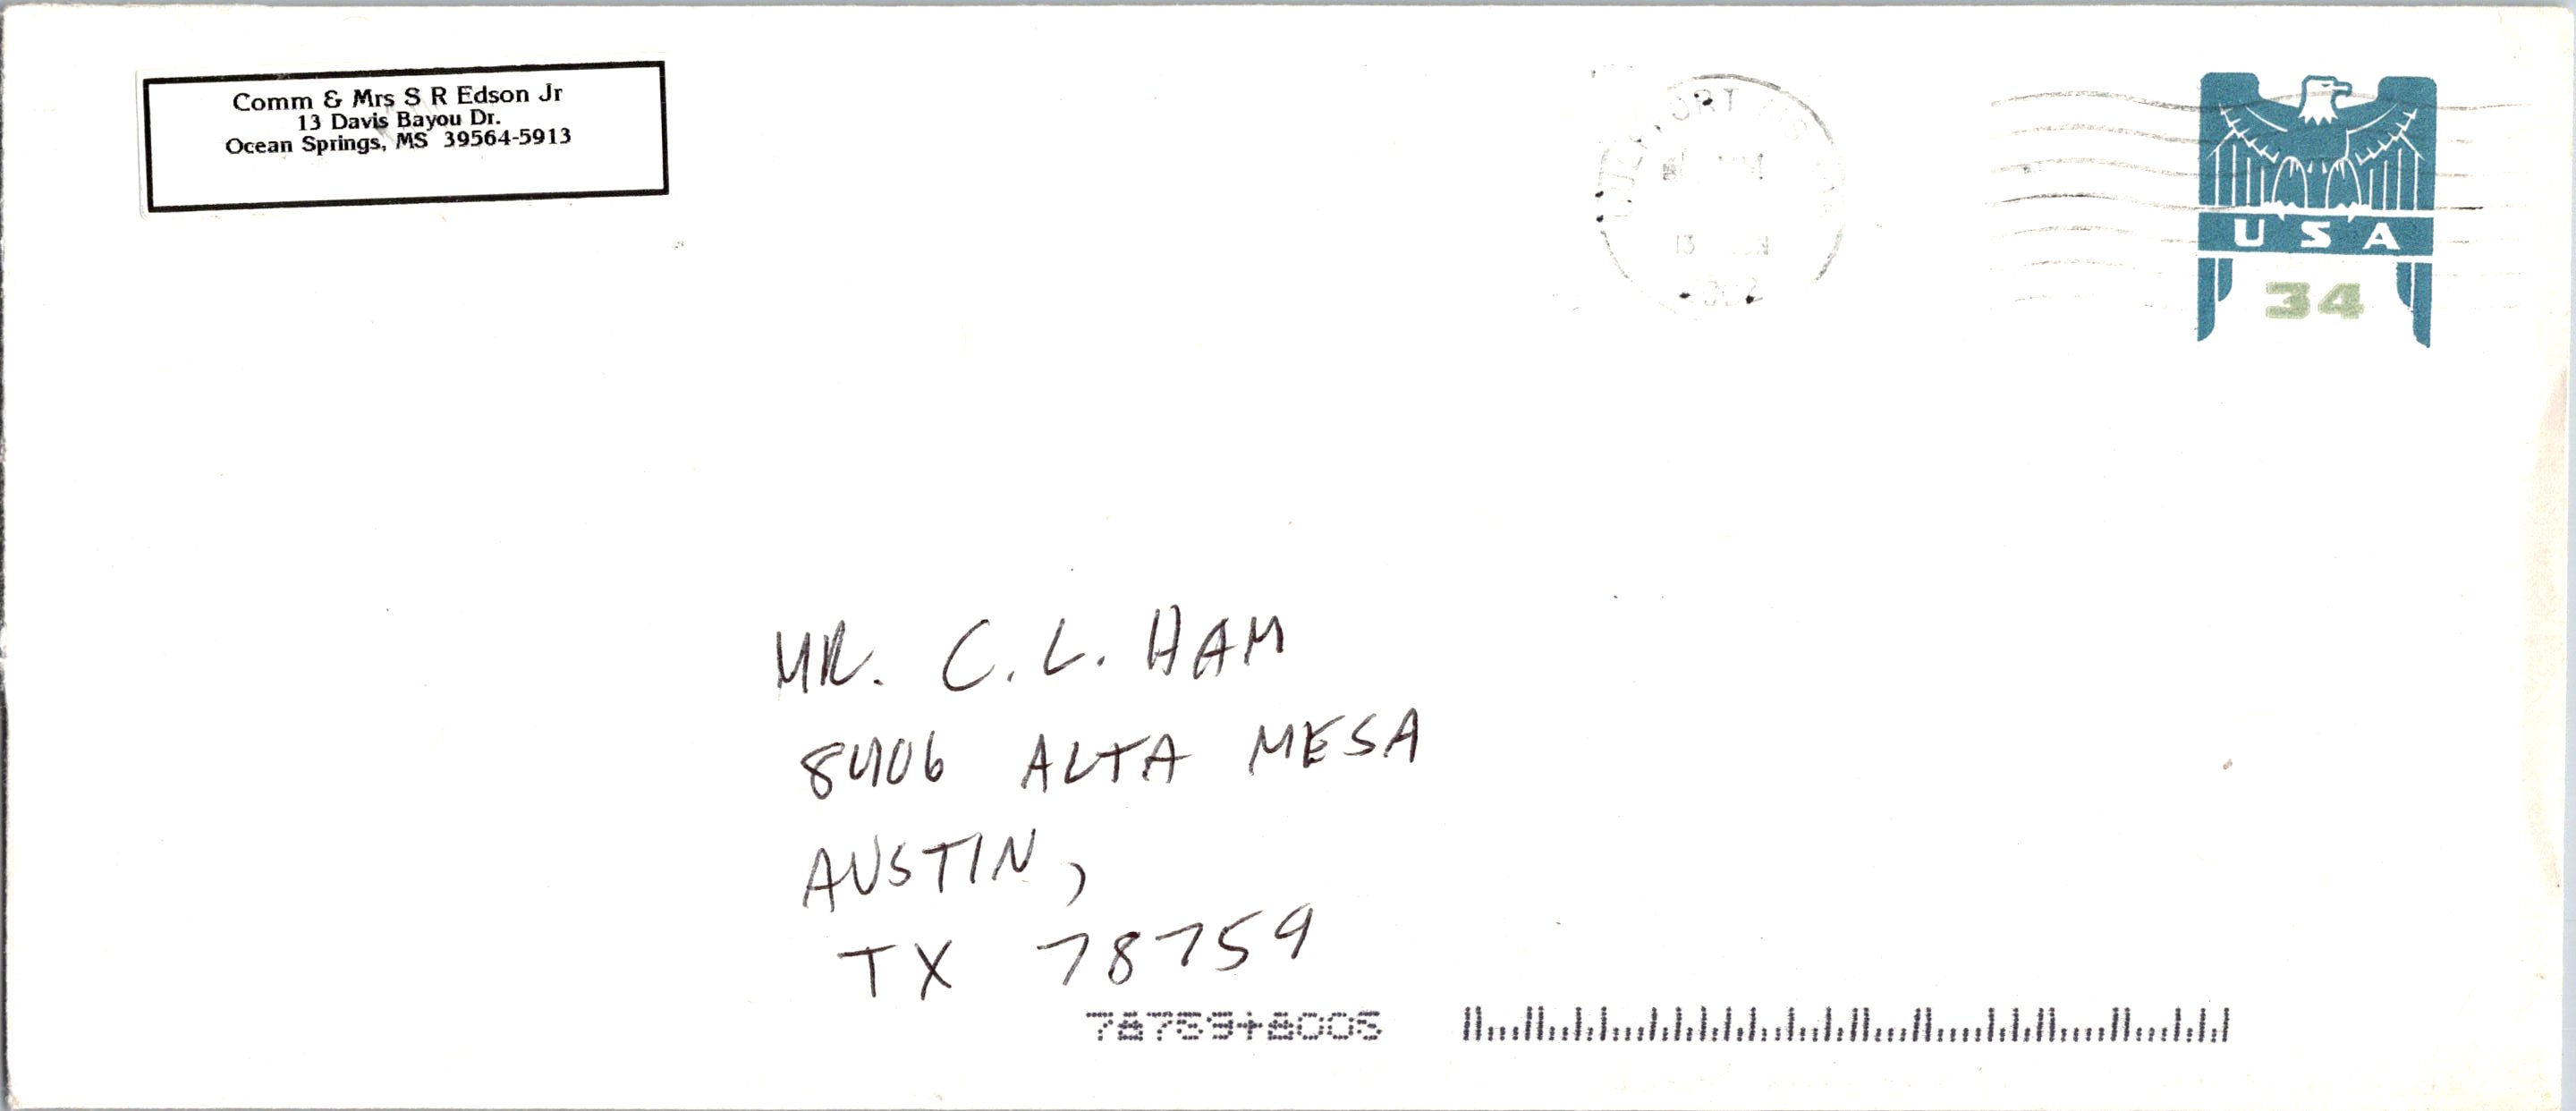 Comm & Mrs S R Edson Jr
13 Davis Bayou Dr.
Ocean Springs, MS 39564-5913
USA
34
MR. C. L. HAM
8406 ALTA MESA
AUSTIN,
TX 78759
78759+8005